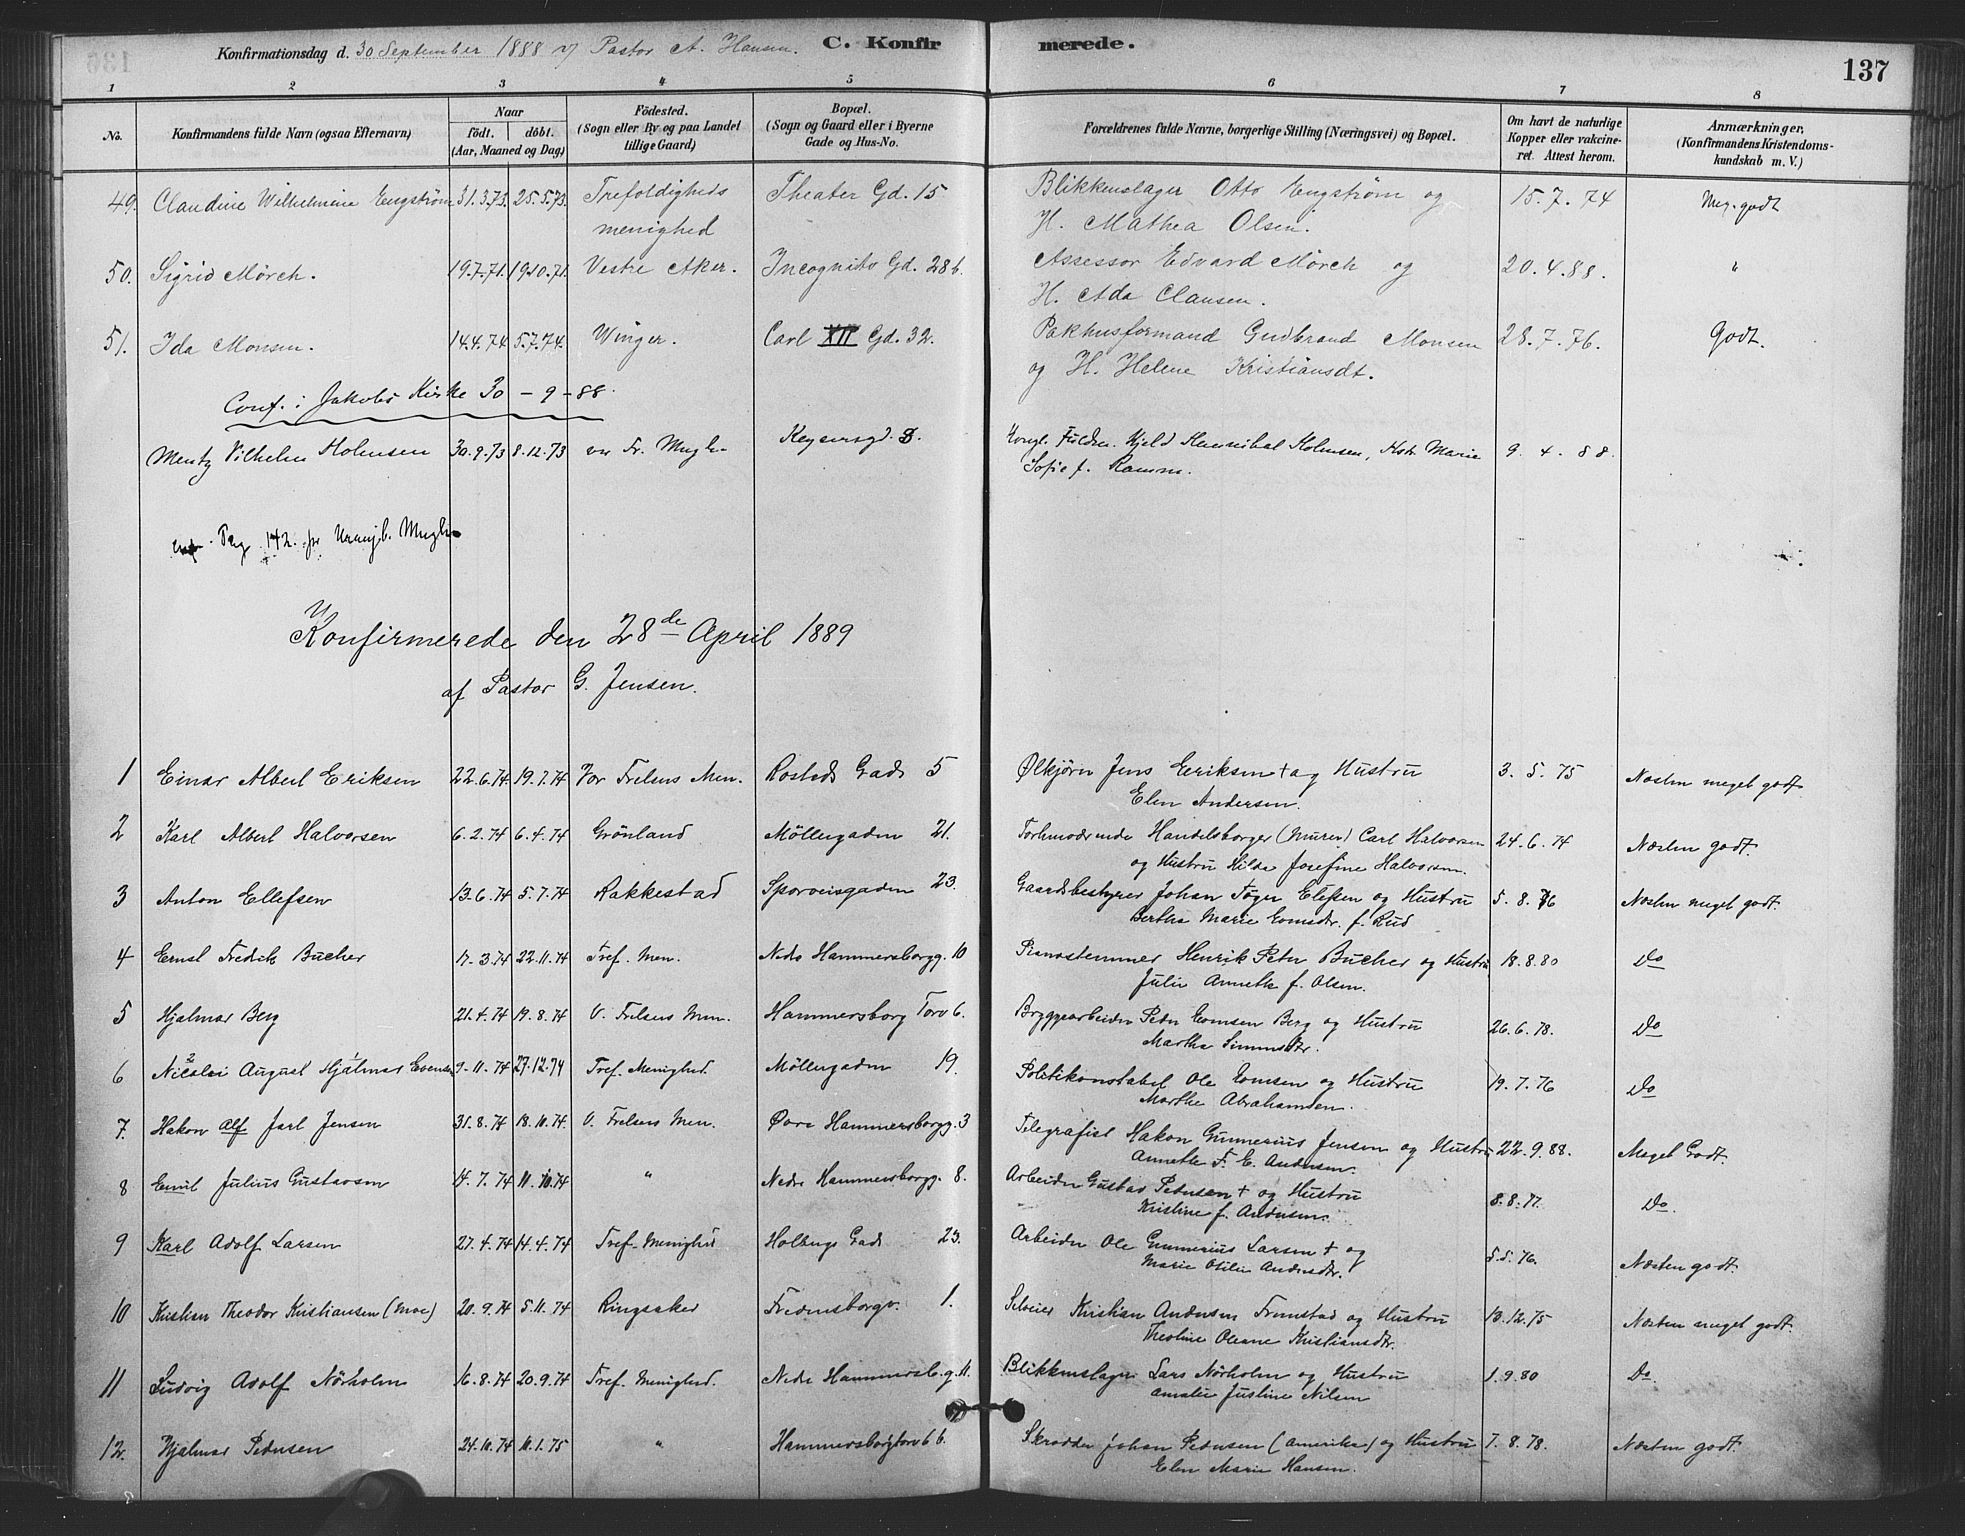 Konfirmationsdag d. 30 September 1888 v Pastor A. Hansen. C. Konfirmerede. 137
1 2 3 4 5 6 7 8
No. Konfirmandens fulde Navn (ogsaa Efternavn) Naar födt. döbt. (Aar, Maaned og Dag) Födested. (Sogn eller By og paa Landet lillige Gaard) Bopæl. (Sogn og Gaard eller i Byerne Gade og Hus-No. Forældrenes fulde Navne, borgerlige Stilling (Næringsvei) og Bopæl. Om havt de naturlige Kopper eller vakcineret. Attest herom. Anmærkninger, (Konfirmandens Kristendomskundskab m. V.)
49. Claudine Wilhelmine Engström 31.3.73. 25.5.73. Trefoldigheds Theater Gd. 15 Blikkenslager Otto Engström og 15.7.74 Meg. godt
menighed H. Mathea Olsen.
50. Sigrid Mörch. 19.7.71. 19.10.71. Vestre Aker. Incognito Gd. 28 b. Assessor Edvard Mörch og 20.4.88. "
H. Ada Clausen.
51. Ida Monsen. 14.4.74 5.7.74. Winger. Carl XII Gd. 32. Pakhusformand Gudbrand Monsen 28.7.76. Godt.
og H. Helene Kristiansdt.
Conf. i Jakobs Kirke 30 - 9 - 88.
Mentz Vilhelm Holmsen 30.9.73 8.12.73 vor Fr. Mgh. Keysersgd. 8. Kongl. Fuldm. Kjeld Hannibal Holmsen, Hstr Marie 9.4.88.
Sofie f. Ramm.
Pag. 142.
Konfirmerede den 28de April 1889
af Pastor G. Jensen.
1 Einar Albert Eriksen 22.6.74. 19.7.74 Vor Frelsers Men. Rosteds Gade 5 Ølkjörer Jens Eriksen + og Hustru 3.5.75 Næsten meget godt
Elen Andersen.
2 Karl Albert Halvorsen 6.2.74 6.4.74 Grönland Möllergaden 21. Forhenværende Handelsborger (Murer) Carl Halvorsen 24.6.74 Næsten godt.
og Hustru Hilda Josefine Halvorsen.
3 Anton Ellefsen 13.6.74 5.7.74 Rakkestad Sporveisgaden 23. Gaardsbestyrer Johan Töger Elefsen og Hustru 5.8.76 Næsten meget godt.
Bertha Marie f. Rud
4 Ernst Fredrik Bucher 17.3.74 22.11.74 Tref. Men. Nedre Hammersborgg. 10 Pianostemmer Henrik Peter Bucher og Hustru 18.8.80 Do
Julie Annette f. Olsen.
5 Hjalmar Berg 21.4.74 19.8.74 V. Frelsers Men. Hammersborg Torv 6. Bryggearbeider Peder Evensen Berg og Hustru 26.6.78. Do
Martha Simensdtr.
6 Nicolai August Hjalmar Evensen 9.11.74 27.12.74 Tref. Menighed. Möllergaden 19. Politikonstabel Ole Evensen og Hustru 19.7.76 Do
Marthe Abrahamsen.
7. Hakon Alf Jarl Jensen 31.8.74 18.10.74. V. Frelsers Men. Øvre Hammersborgg. 3 Telegrafist Hakon Gunnerius Jensen og Hustru 22.9.88. Meget Godt.
Annette F. E. Andersen.
8 Emil Julius Gustavsen 14.7.74 11.10.74 " Nedre Hammersborgg. 8. Arbeider Gustav Pedersen + og Hustru 8.8.77. Do.
Kristine f. Andersen.
9 Karl Adolf Larsen 27.4.74 14.4.74 Tref. Menighed Holbergs Gade 23. Arbeider Ole Gunnerius Larsen + og 5.5.76. Næsten godt.
Marie Otilie Andersdtr.
10 Kristian Theodor Kristiansen (Moe) 20.9.74 5.11.74 Ringsaker Fredensborgv. 1. Selveier Kristian Andersen Frenstad og Hustru 13.12.75 Næsten meget godt.
Theoline Oleane Kristiansdtr.
11 Ludvig Adolf Nörholm 16.8.74 20.9.74 Tref. Menighed. Nedre Hammersb.g. 11. Blikkenslager Lars Nörholm og Hustru 1.9.80 Do.
Amalie Justine Nilsen
12. Hjalmar Pedersen 24.10.74 10.1.75 " Hammersborgtorv 6 b. Skrædder Johan Pedersen (Amerika) og Hustru 7.8.78. Næsten godt.
Elen Marie Hansen.